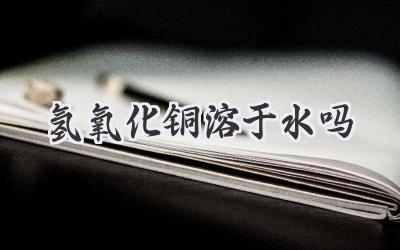 氢氧化铜溶于水吗